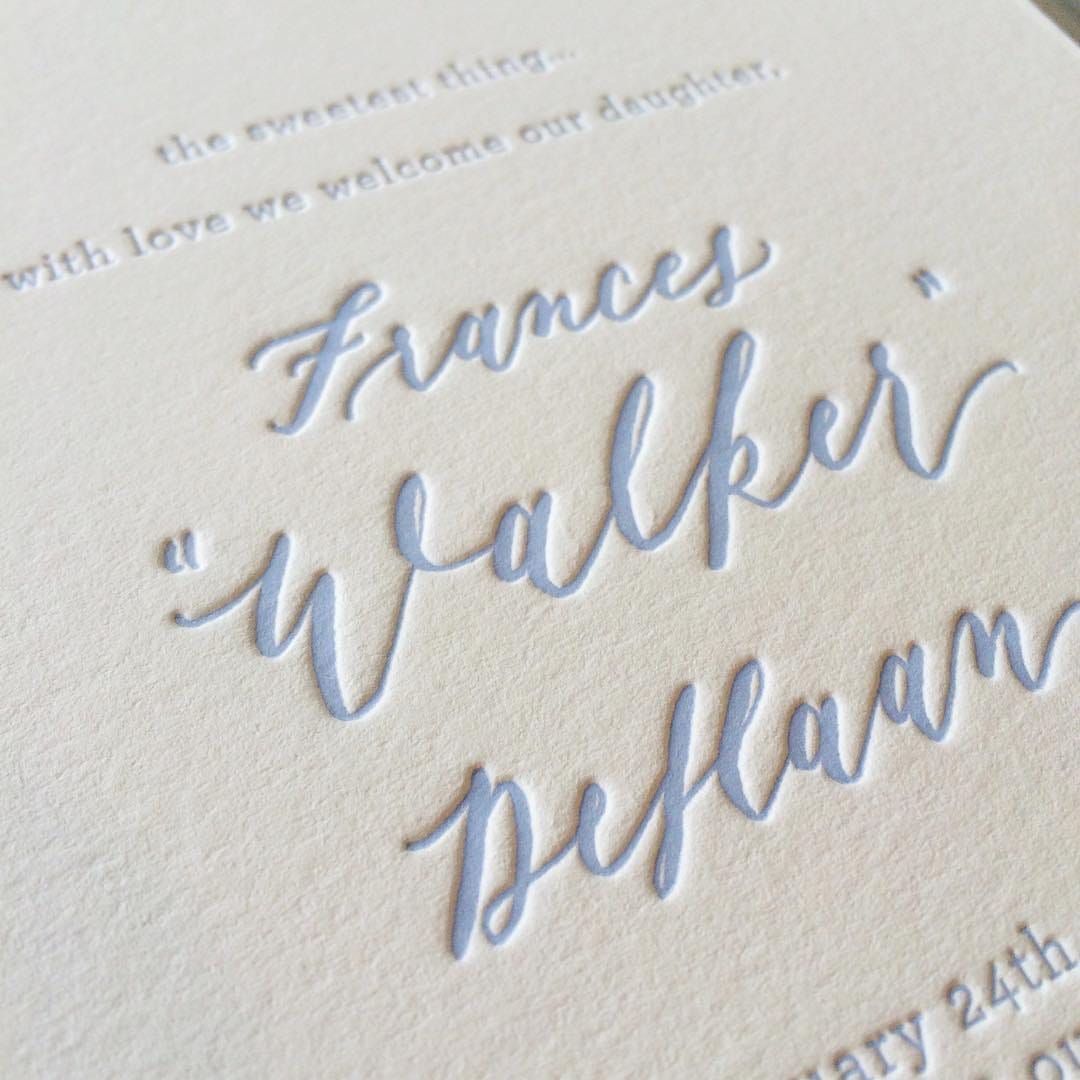 the sweetest thing...
with love we welcome our daughter,
Frances
"Walker"
Deflaan
uary 24th,
ou